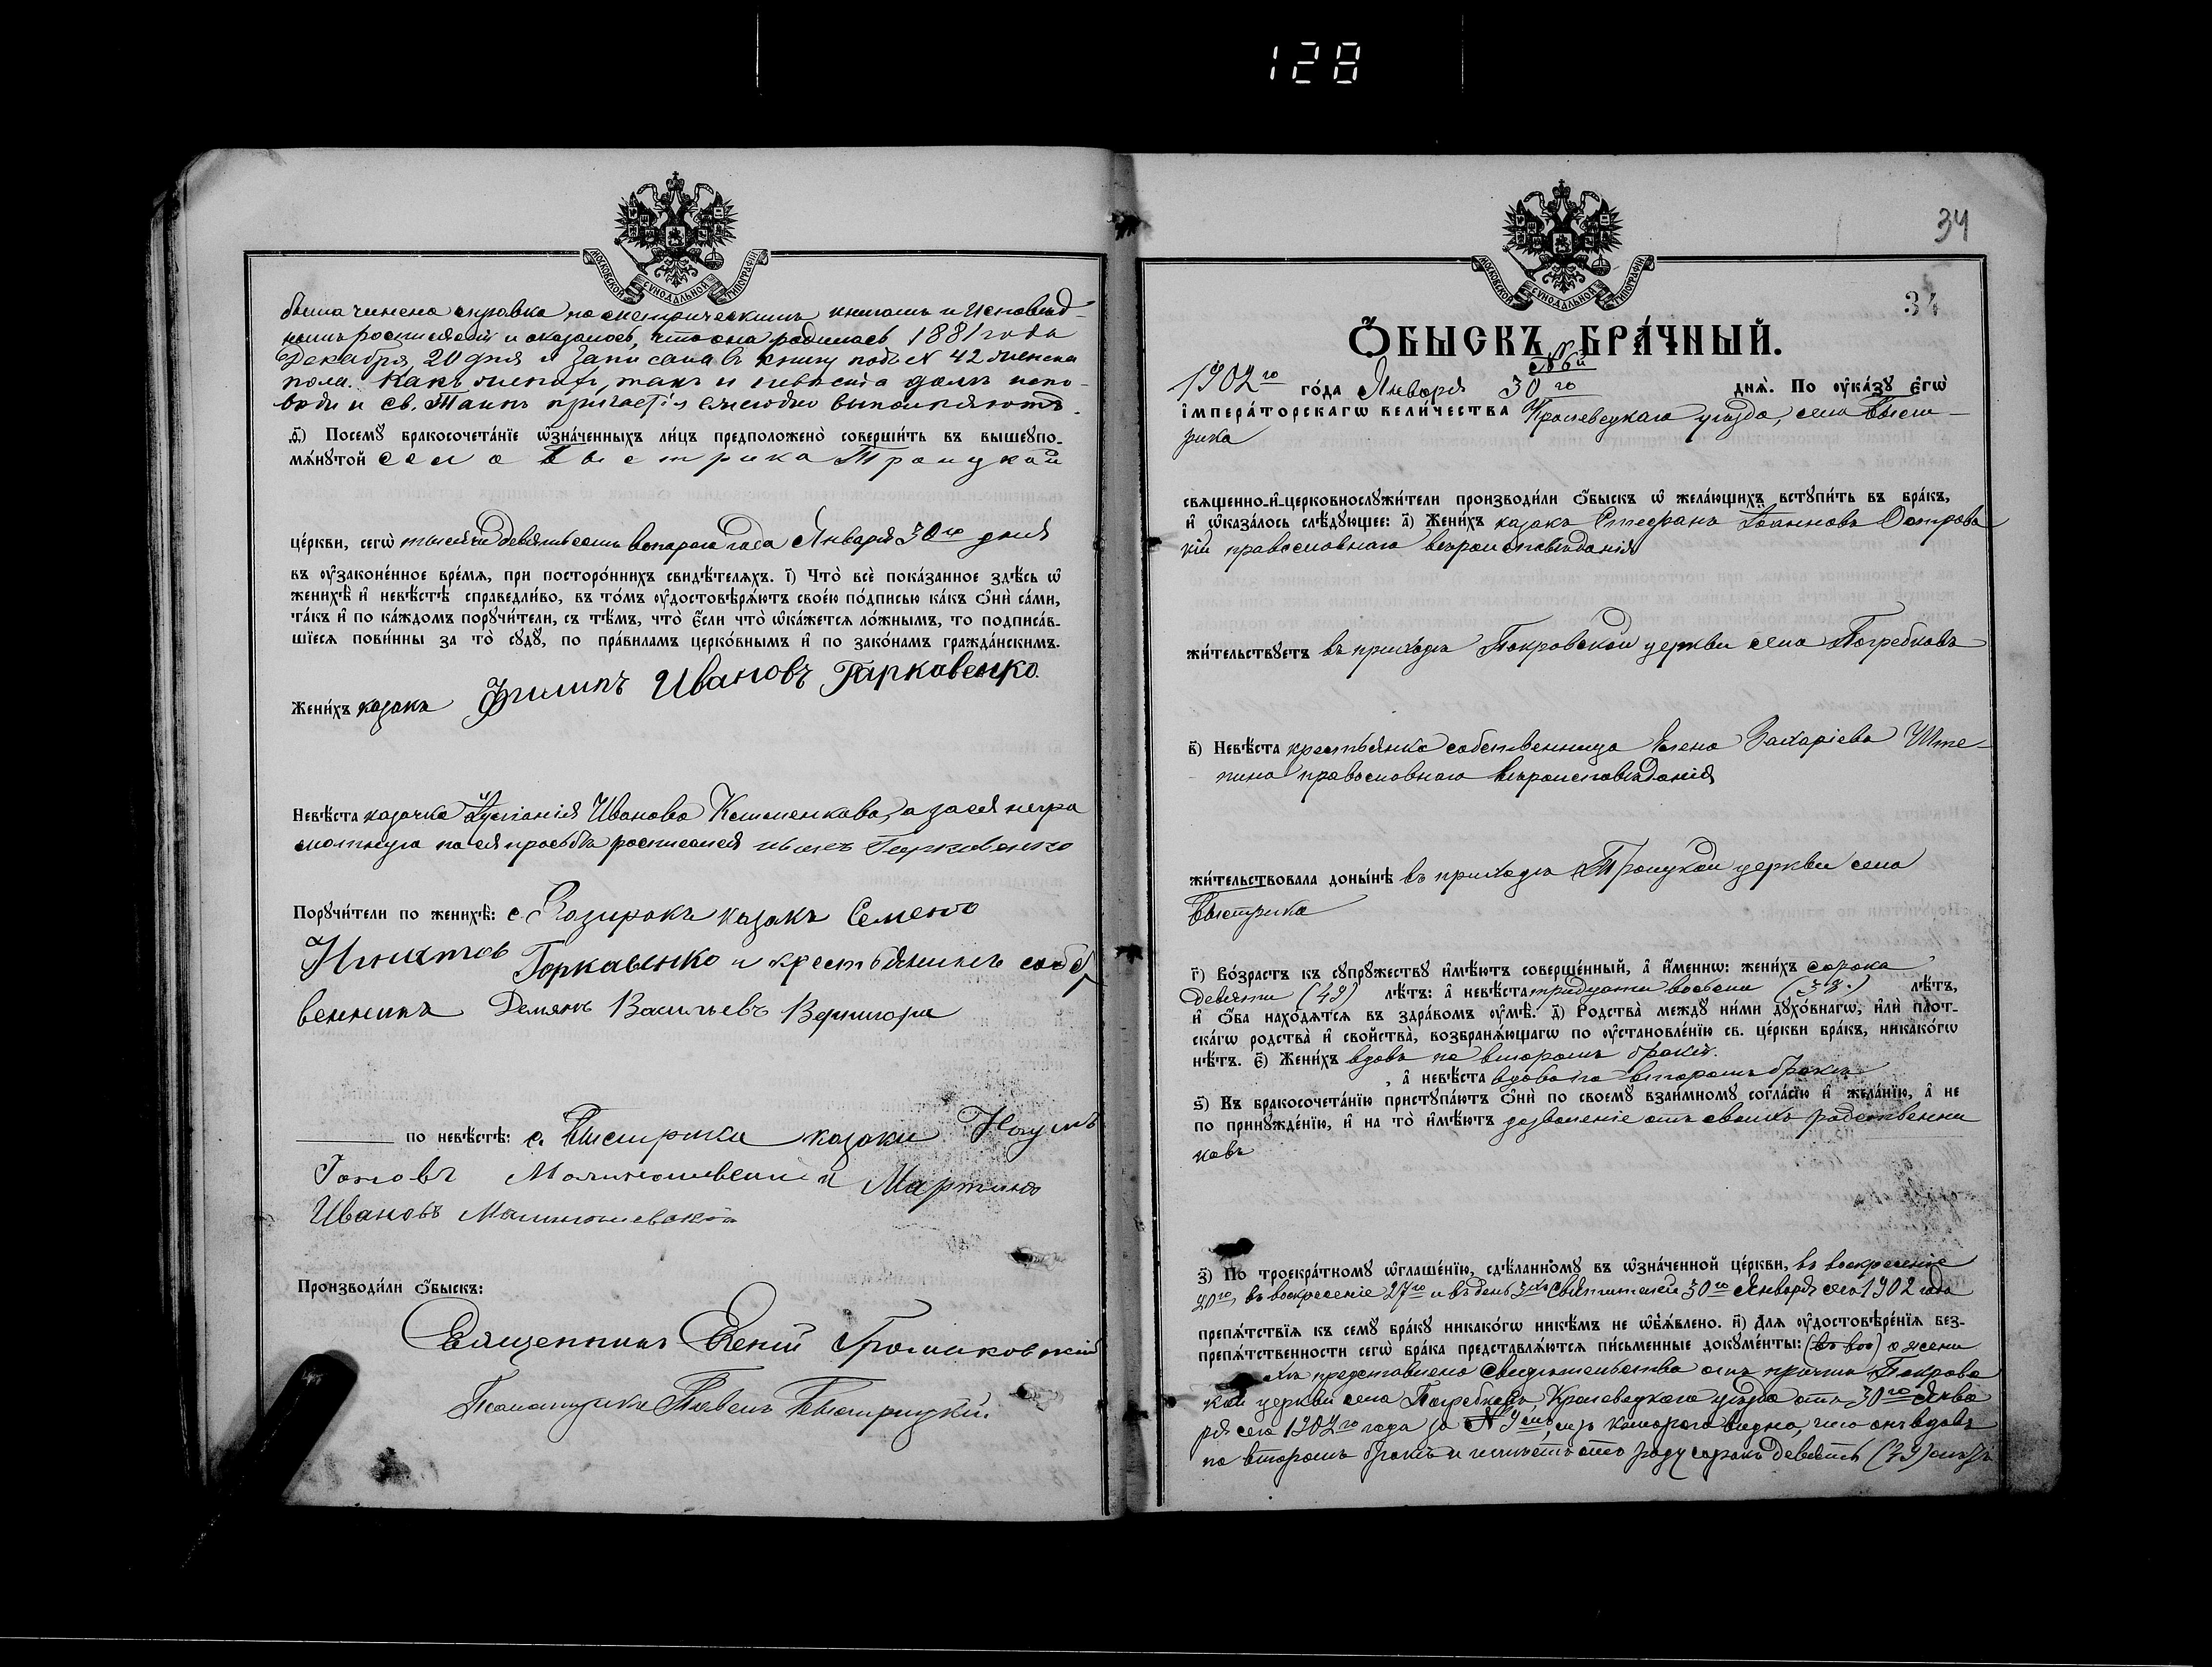 128
МОСКОВСКОЙ СУНОДАЛЬНОЙ ТИПОГРАФІИ
была чинена справка по метрическимъ книгамъ и исповѣд-
нымъ росписямъ и оказалось, что она родилась 1881 года
Декабря 20 дня и записана въ книгу подъ № 42 женска
пола. Какъ женихъ, такъ и невѣста долгъ испо-
вѣди и св. Таинъ причастія ежегодно выполняютъ.
д҃) Посемꙋ̀ бракосочета́нїе ѡ҆зна́ченныхъ ли́цъ предположено̀ соверши́ть въ вышеꙋпо-
мѧ́нꙋтой села Быстрика Троицкой
це́ркви, сегѡ̀ тысяча девятьсотъ второго года Января 30го дня
въ ᲂу҆зако́ненное вре́мѧ, при посторо́ннихъ свидѣ́телѧхъ. і҃) Что̀ всѐ пока́занное здѣ́сь ѡ҆
женихѣ̀ и҆ невѣ́стѣ справедли́во, въ то́мъ ᲂу҆достовѣрѧ́ютъ свое́ю по́дписью ка́къ ѻ҆нѝ са́ми,
та́къ и҆ по ка́ждомъ порꙋчи́тели, съ тѣ́мъ, что̀ є҆́сли что̀ ѡ҆ка́жетсѧ ло́жнымъ, то подписа́в-
шїесѧ пови́нны за то̀ сꙋдꙋ̀, по пра́виламъ церко́внымъ и҆ по зако́намъ гражда́нскимъ.
Жени́хъ казакъ Филипъ Ивановъ Гаркавенко.
Невѣ́ста казачка Иванова а за ея негра
мотную по ея просьбѣ росписался Гаркавенко
Порꙋчи́тели по женихѣ̀: с. казакъ Семенъ
Игнатов Горкавенко и крестьянинъ собст
венникъ Демянъ Васильевъ Вернигора
по невѣ́стѣ: с. Быстрика казаки Наумъ
и Мартинъ
Ивановъ
Производи́ли ѻ҆́быскъ:
Священникъ Громаковский
Псаломщикъ Павелъ Быстрицкій.
34
МОСКОВСКОЙ СУНОДАЛЬНОЙ ТИПОГРАФІИ
34
Ѻ҆́БЫСКЪ БРА́ЧНЫЙ.
№ 6й
1902го го́да Января 30го днѧ̀. По ᲂу҆ка́зꙋ є҆гѡ̀
і҆мпера́торскагѡ вели́чества Кролевецкаго уѣзда, села Быст-
рика
свѧщенно-и҆-церковнослꙋжи́тели производи́ли ѻ҆́быскъ ѡ҆ жела́ющихъ встꙋпи́ть въ бра́къ,
и҆ ѡ҆каза́лось слѣ́дꙋющее: а҃) Жени́хъ казакъ Стефанъ Іоанновъ Островс
кій православнаго вѣроисповѣданія
жи́тельствꙋетъ въ приходѣ Покровской церкви села Погребковъ
в҃) Невѣ́ста крестьянка собственница Елена Захаріева Ште-
пина православнаго вѣроисповѣданія
жи́тельствовала доны́нѣ въ приходѣ Троицкой церкви села
Быстрика
г҃) Во́зрастъ къ сꙋпрꙋжествꙋ и҆мѣ́ютъ соверше́нный, а҆ и҆́меннѡ: жени́хъ сорока
девяти (49) лѣ́тъ: а҆ невѣ́ста тридцати восьми (38.) лѣ́тъ,
и҆ ѻ҆́ба нахо́дѧтсѧ въ здра́вомъ ᲂу҆мѣ̀. д҃) Родства̀ междꙋ̀ ни́ми дꙋхо́внагѡ, и҆лѝ пло́т-
скагѡ родства̀ и҆ сво́йства̀, возбранѧ́ющагѡ по ᲂу҆становле́нїю св. це́ркви бра́къ, никако́гѡ
нѣ́тъ. є҃) Жени́хъ вдовъ по второмъ бракѣ.
, а҆ невѣ́ста вдова по второмъ бракѣ
ѕ҃) Въ бракосочета́нїю пристꙋпа́ютъ ѻ҆нѝ по своемꙋ̀ взаи́мномꙋ согла́сїю и҆ жела́нїю, а҆ не
по принꙋжде́нїю, и҆ на то̀ и҆мѣ́ютъ дозволеніе отъ своихъ родственни
ковъ
з҃) По троекра́тномꙋ ѡ҆глаше́нїю, сдѣ́ланномꙋ въ ѡ҆зна́ченной це́ркви, въ воскресеніе
20го, въ воскресеніе 27го и въ день 3хъ Святителей 30го Января сего 1902 года
препѧ́тствїѧ къ семꙋ̀ бра́кꙋ никако́гѡ никѣ́мъ не ѡ҆б̾ѧ́влено. и҃) Длѧ ᲂу҆достовѣре́нїѧ без-
препѧ́тственности сегѡ̀ бра́ка представлѧ́ютсѧ пи́сьменные докꙋме́нты: о жени
хѣ представлено свидѣтельство отъ причта Покровс
кой церкви села Погребковъ, Кролевецкаго уѣзда отъ 30го Янва
ря сего 1902го года за № изъ котораго видно, что онъ вдовъ
по второмъ бракѣ и имѣетъ отъ роду сорокъ девять (49) лѣтъ